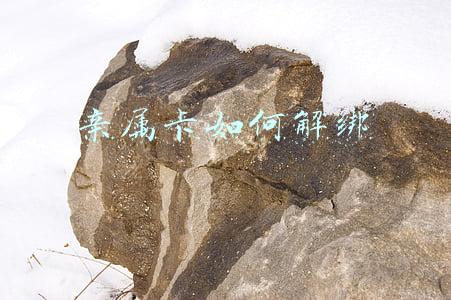 亲属卡如何解绑